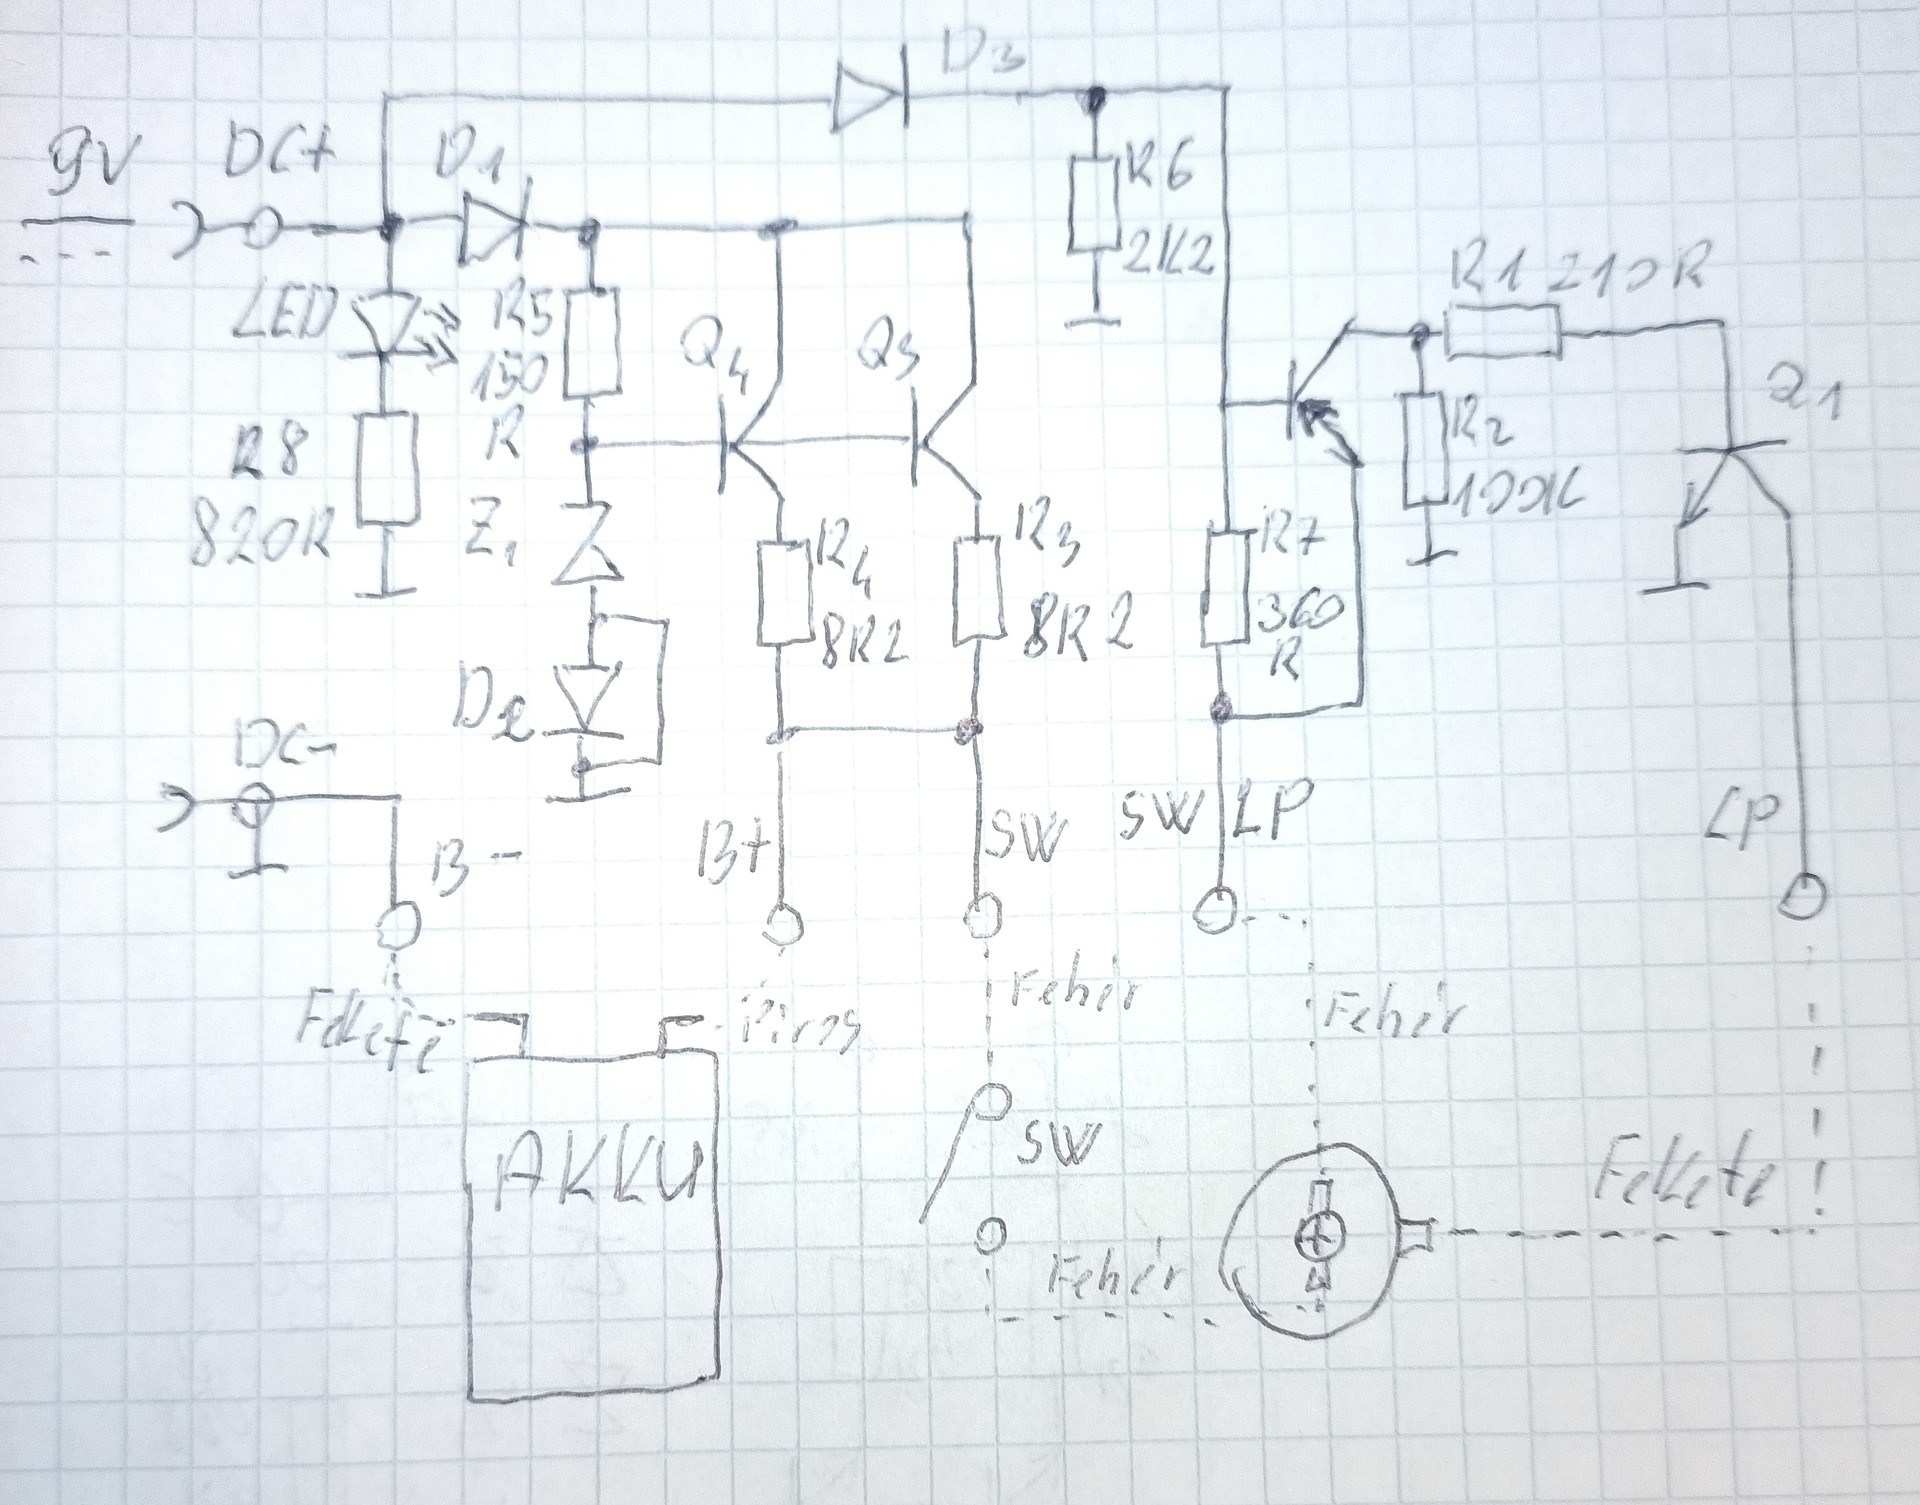 D3
9V DC+ D1
R6
2K2
LED
R5
150
R
Q4
R1 210R
R8
820R
R2
100K
Q1
Z1
R4
8R2
R3
8R2
R7
360
R
D2
DC-
B-
B+
SW
SW LP
LP
Fekete
Piros
Fehér
Fehér
AKKU
SW
Fehér
Fekete